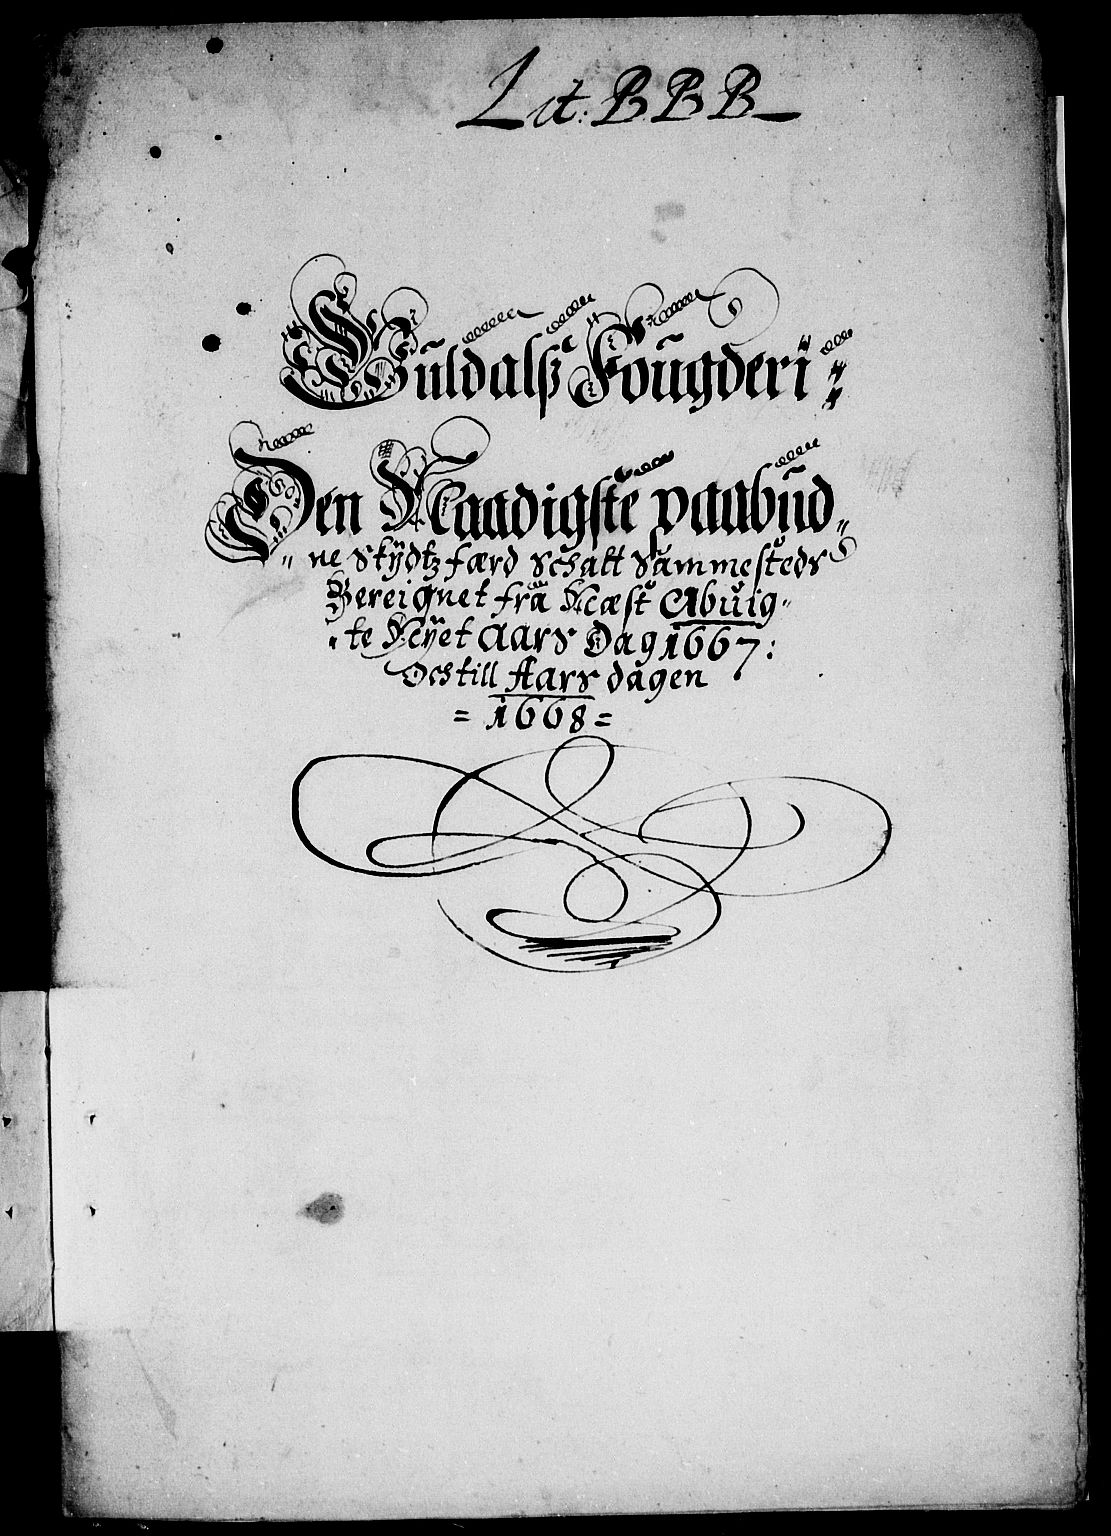 Lit: B B B
Guldalsz Fougderi
Den Naadigste paabud„
„ne Skÿdtz færd Schatt Sammesteds
Bereignet fra Næst Abvig„
„te Nÿet Aars Dag 1667:
Och till Aars dagen
= 1668 =